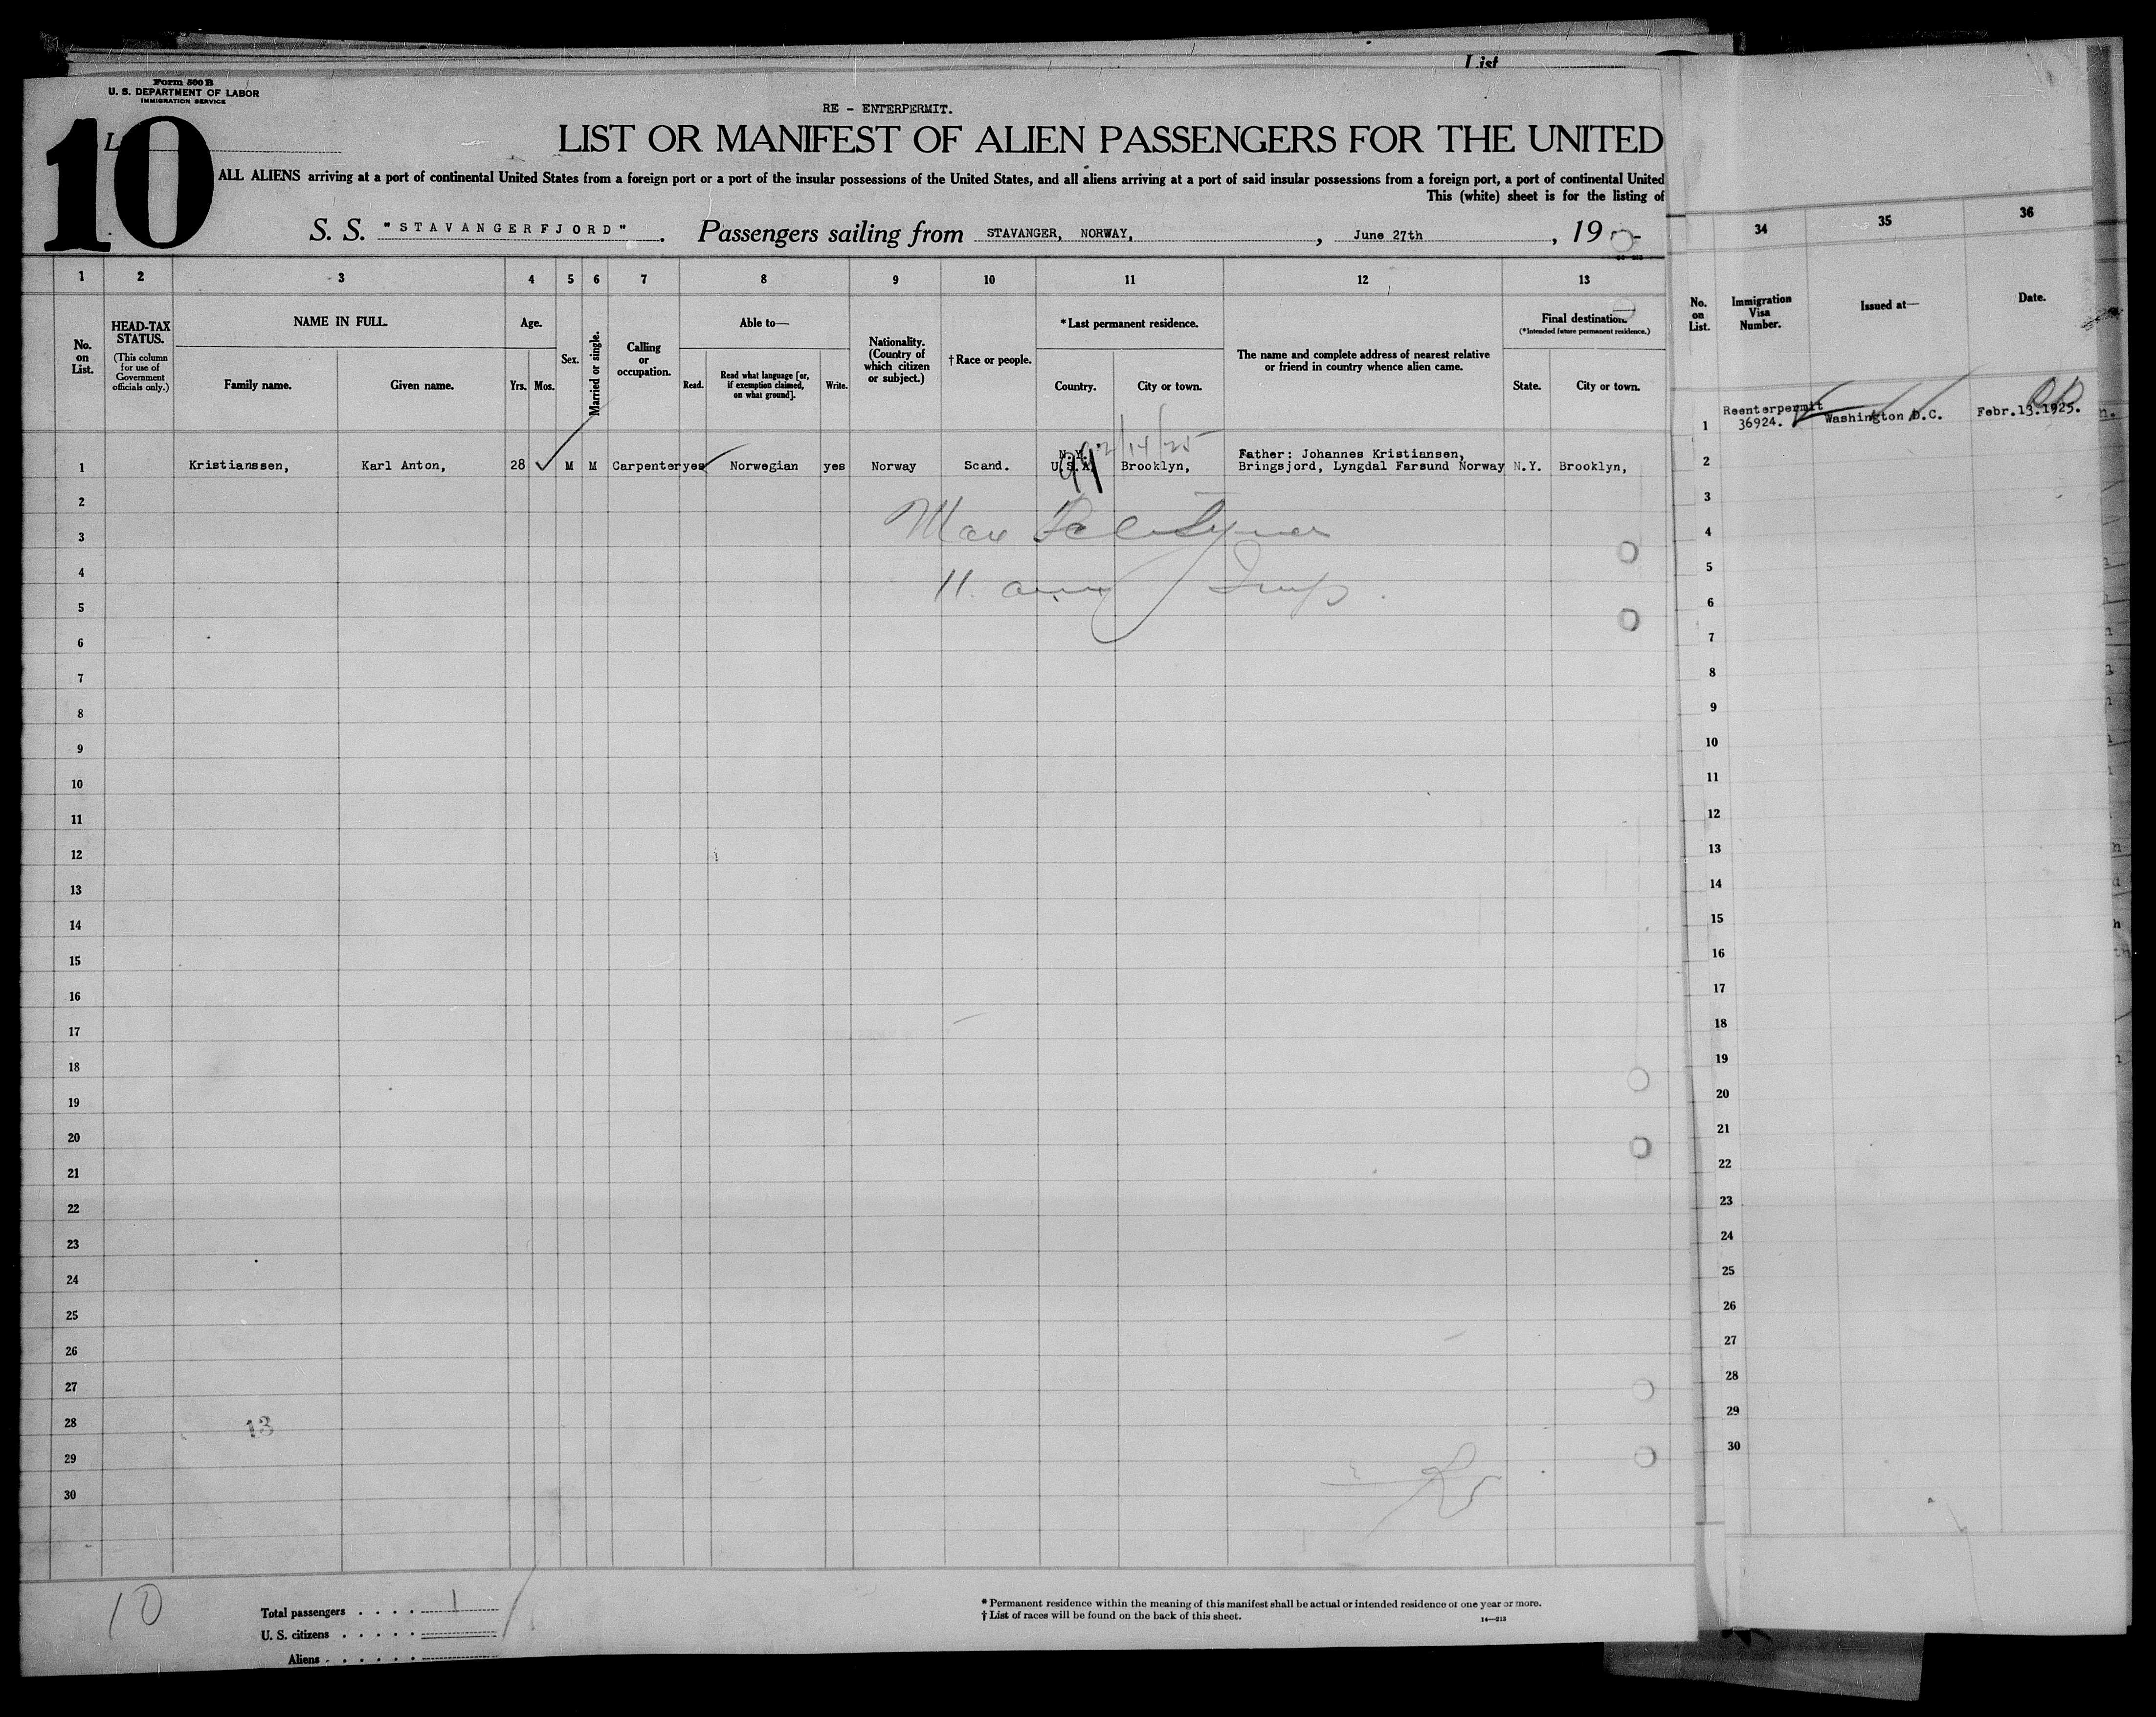 List
Form 500 B
U. S. DEPARTMENT OF LABOR
IMMIGRATION SERVICE
10
RE - ENTERPERMIT.
LIST OR MANIFEST OF ALIEN PASSENGERS FOR THE UNITED
ALL ALIENS arriving at a port of continental United States from a foreign port or a port of the insular possessions of the United States, and all aliens arriving at a port of said insular possessions from a foreign port, a port of continental United
This (white) sheet is for the listing of
S. S. "STAVANGERFJORD". Passengers sailing from STAVANGER, NORWAY, , June 27th , 19
1 2 3 4 5 6 7 8 9 10 11 12 13
No. on List.
HEAD-TAX STATUS.
(This column for use of Government officials only.)
NAME IN FULL.
Family name. Given name.
Age.
Yrs. Mos.
Sex.
Married or single.
Calling or occupation.
Able to—
Read. Read what language [or, if exemption claimed, on what ground]. Write.
Nationality. (Country of which citizen or subject.)
†Race or people.
*Last permanent residence.
Country. City or town.
The name and complete address of nearest relative or friend in country whence alien came.
Final destination.
(*Intended future permanent residence.)
State. City or town.
2/14/25
N.Y. Father: Johannes Kristiansen,
1 Kristianssen, Karl Anton, 28 M M Carpenter yes Norwegian yes Norway Scand. U.S.A. Brooklyn, Bringsjord, Lyngdal Farsund Norway N.Y. Brooklyn,
2
3
4
5
6
7
8
9
10
11
12
13
14
15
16
17
18
19
20
21
22
23
24
25
26
27
28
13
29
30
10
Total passengers . . . . 1
U. S. citizens . . . . .
Aliens . . . . . .
* Permanent residence within the meaning of this manifest shall be actual or intended residence of one year or more.
† List of races will be found on the back of this sheet.
14—213
34 35 36
No. on List.
Immigration Visa Number.
Issued at—
Date.
Reenterpermit
1 36924. Washington D.C. Febr.13.1925.
2
3
4
5
6
7
8
9
10
11
12
13
14
15
16
17
18
19
20
21
22
23
24
25
26
27
28
29
30